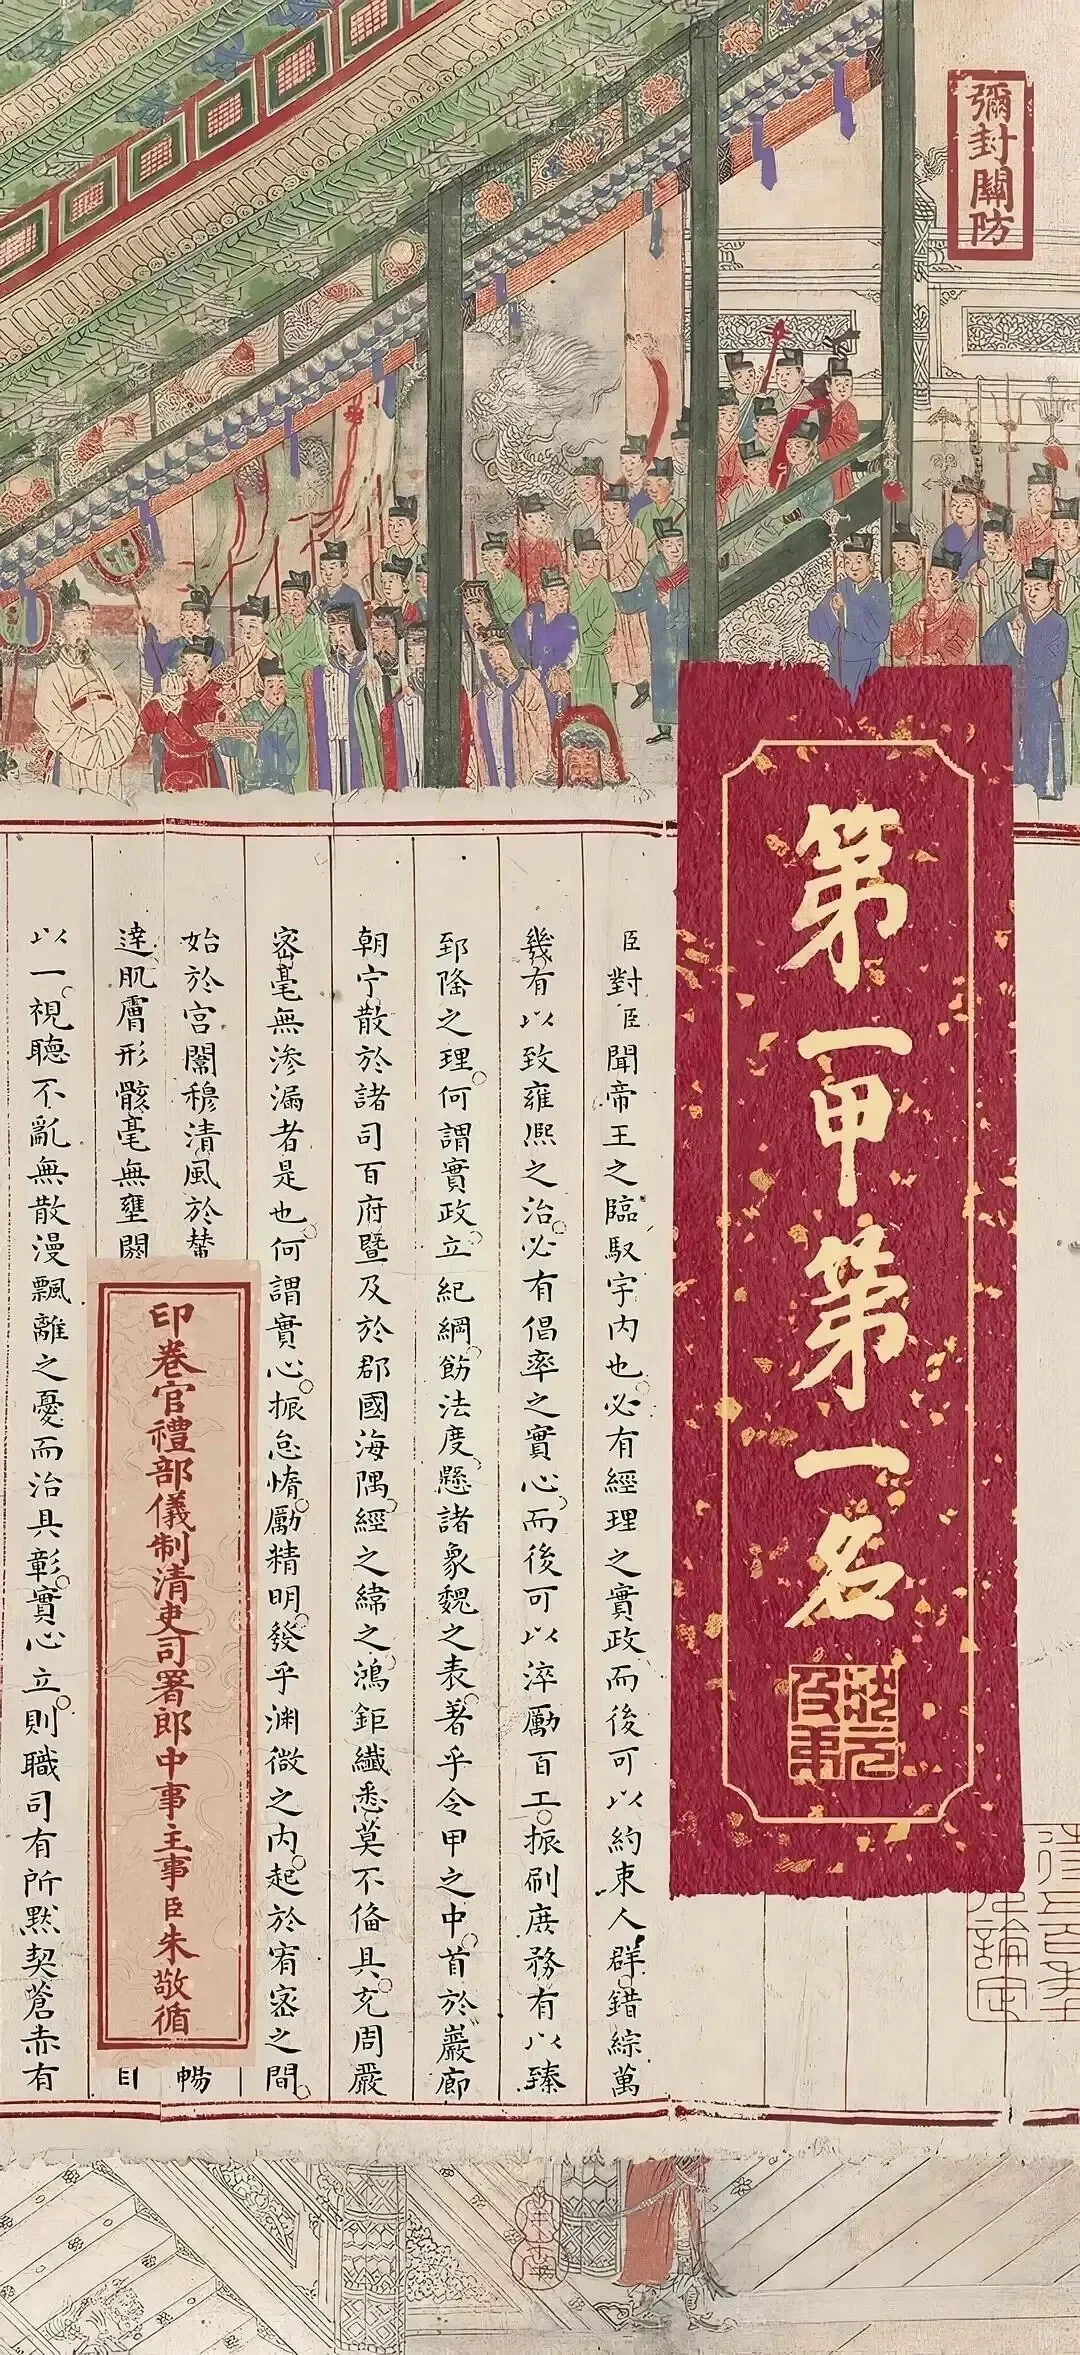 彌封關防
第一甲第一名
狀元及第
臣對臣聞帝王之臨馭宇内也必有經理之實政而後可以約束人群錯綜萬
幾有以致雍熙之治必有倡率之實心而後可以淬勵百工振刷庶務有以臻
郅隆之理何謂實政立紀綱飭法度懸諸象魏之表著乎令甲之中首於巖廊
朝宁散於諸司百府暨及於郡國海隅經之緯之鴻鉅纖悉莫不備具充周嚴
密毫無滲漏者是也何謂實心振怠惰勵精明發乎淵微之内起於宥密之間
始於宫闈穆清風於輦
暢
達肌膚形骸毫無壅閼
目
以一視聽不亂無散漫飄離之憂而治具彰實心立則職司有所默契蒼赤有
印卷官禮部儀制清吏司署郎中事主事臣朱敬循